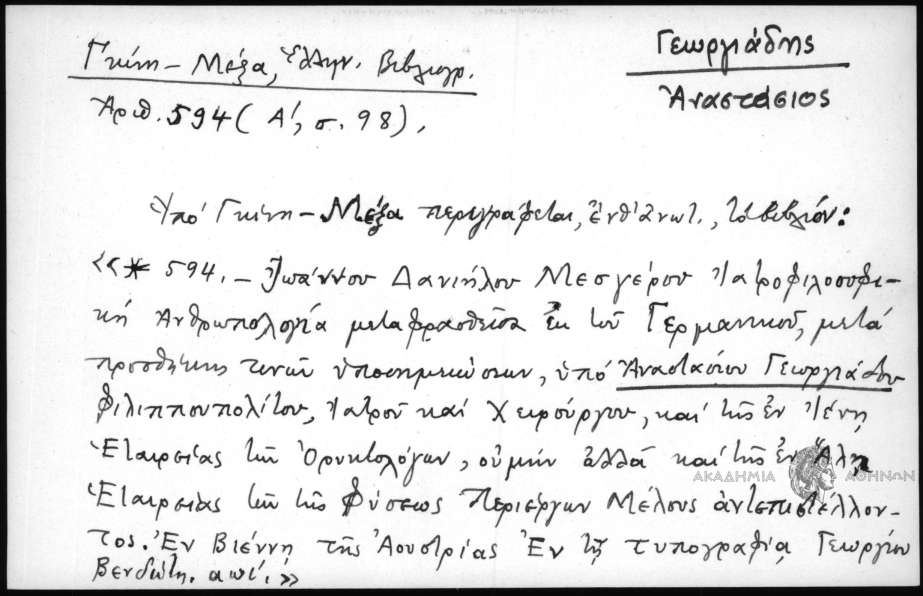 Γεωργιάδης
Ἀναστάσιος
Γκίνη – Μέξα, Ἑλλην. Βιβλιογρ.
Ἀριθ. 594 (Α΄, σ. 98).
Ὑπό Γκίνη – Μέξα περιγράφεται, ἐνθ' ἀνωτ., τό βιβλίον:
«* 594. – Ἰωάννου Δανιήλου Μεσγέρου Ἰατροφιλοσοφι-
κή Ἀνθρωπολογία μεταφρασθεῖσα ἐκ τοῦ Γερμανικοῦ, μετά
προσθήκης τινῶν ὑποσημειώσεων, ὑπό Ἀναστασίου Γεωργιάδου
Φιλιππουπολίτου, Ἰατροῦ καί Χειρούργου, καί τῆς ἐν Ἰένῃ
Ἑταιρείας τῶν Ὀρυκτολόγων, οὐ μήν ἀλλά καί τῆς ἐν Ἅλῃ
Ἑταιρείας τῶν τῆς Φύσεως Περιέργων Μέλους ἀντεπιστέλλον-
τος. Ἐν Βιέννῃ τῆς Ἀουστρίας Ἐν τῇ τυπογραφίᾳ Γεωργίου
Βενδώτη. αωί.»
ΑΚΑΔΗΜΙΑ ΑΘΗΝΩΝ